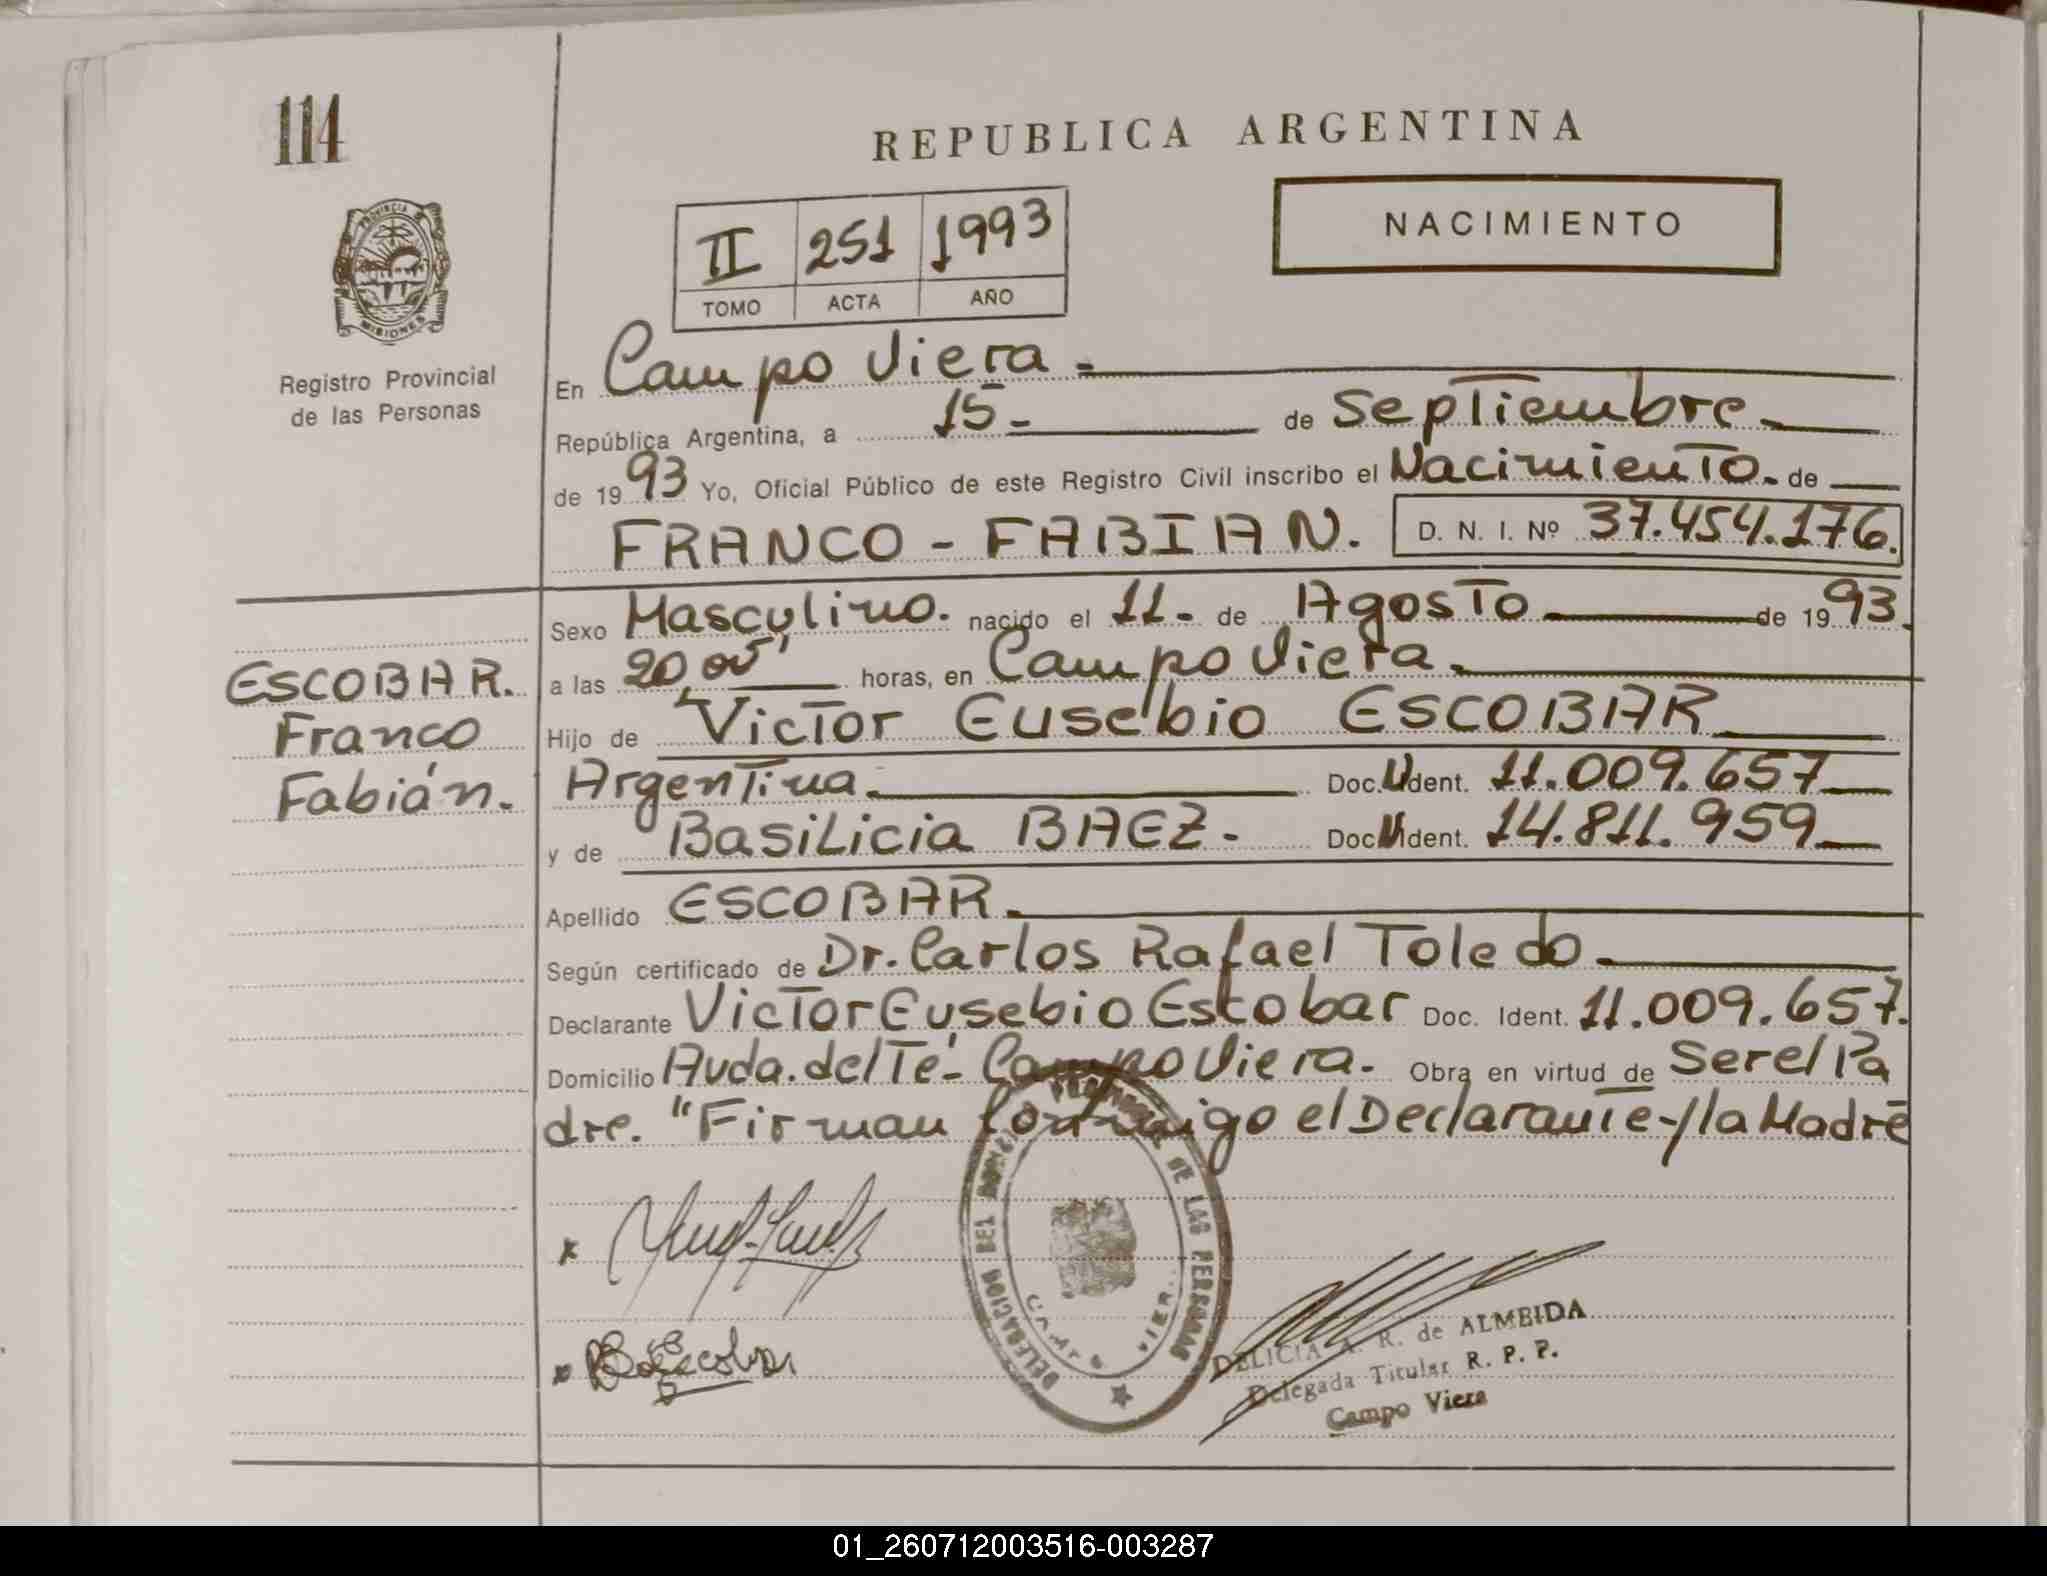 114
REPUBLICA ARGENTINA
NACIMIENTO
II 251 1993
TOMO ACTA AÑO
PROVINCIA DE
MISIONES
Registro Provincial
de las Personas
En Campo Viera.
República Argentina, a 15 de Septiembre
de 1993 Yo, Oficial Público de este Registro Civil inscribo el Nacimiento de
FRANCO - FABIAN. D. N. I. Nº 37.454.176.
Sexo Masculino. nacido el 11 de Agosto de 1993.
a las 20 05' horas, en Campo Viera.
Hijo de Victor Eusebio ESCOBAR
Argentina. Doc. U Ident. 11.009.657
y de BasiLicia BAEZ. Doc. U Ident. 14.811.959
Apellido ESCOBAR
Según certificado de Dr. Carlos Rafael Toledo
Declarante Victor Eusebio Escobar Doc. Ident. 11.009.657.
Domicilio Avda. del Té - Campo Viera. Obra en virtud de Ser el Pa
dre. "Firman Conmigo el Declarante y la Madre
ESCOBAR.
Franco
Fabián.
DELEGACION DEL REGISTRO PROVINCIAL DE LAS PERSONAS
CAMPO VIERA
DELICIA A. R. de ALMEIDA
Delegada Titular R. P. P.
Campo Viera
01_260712003516-003287